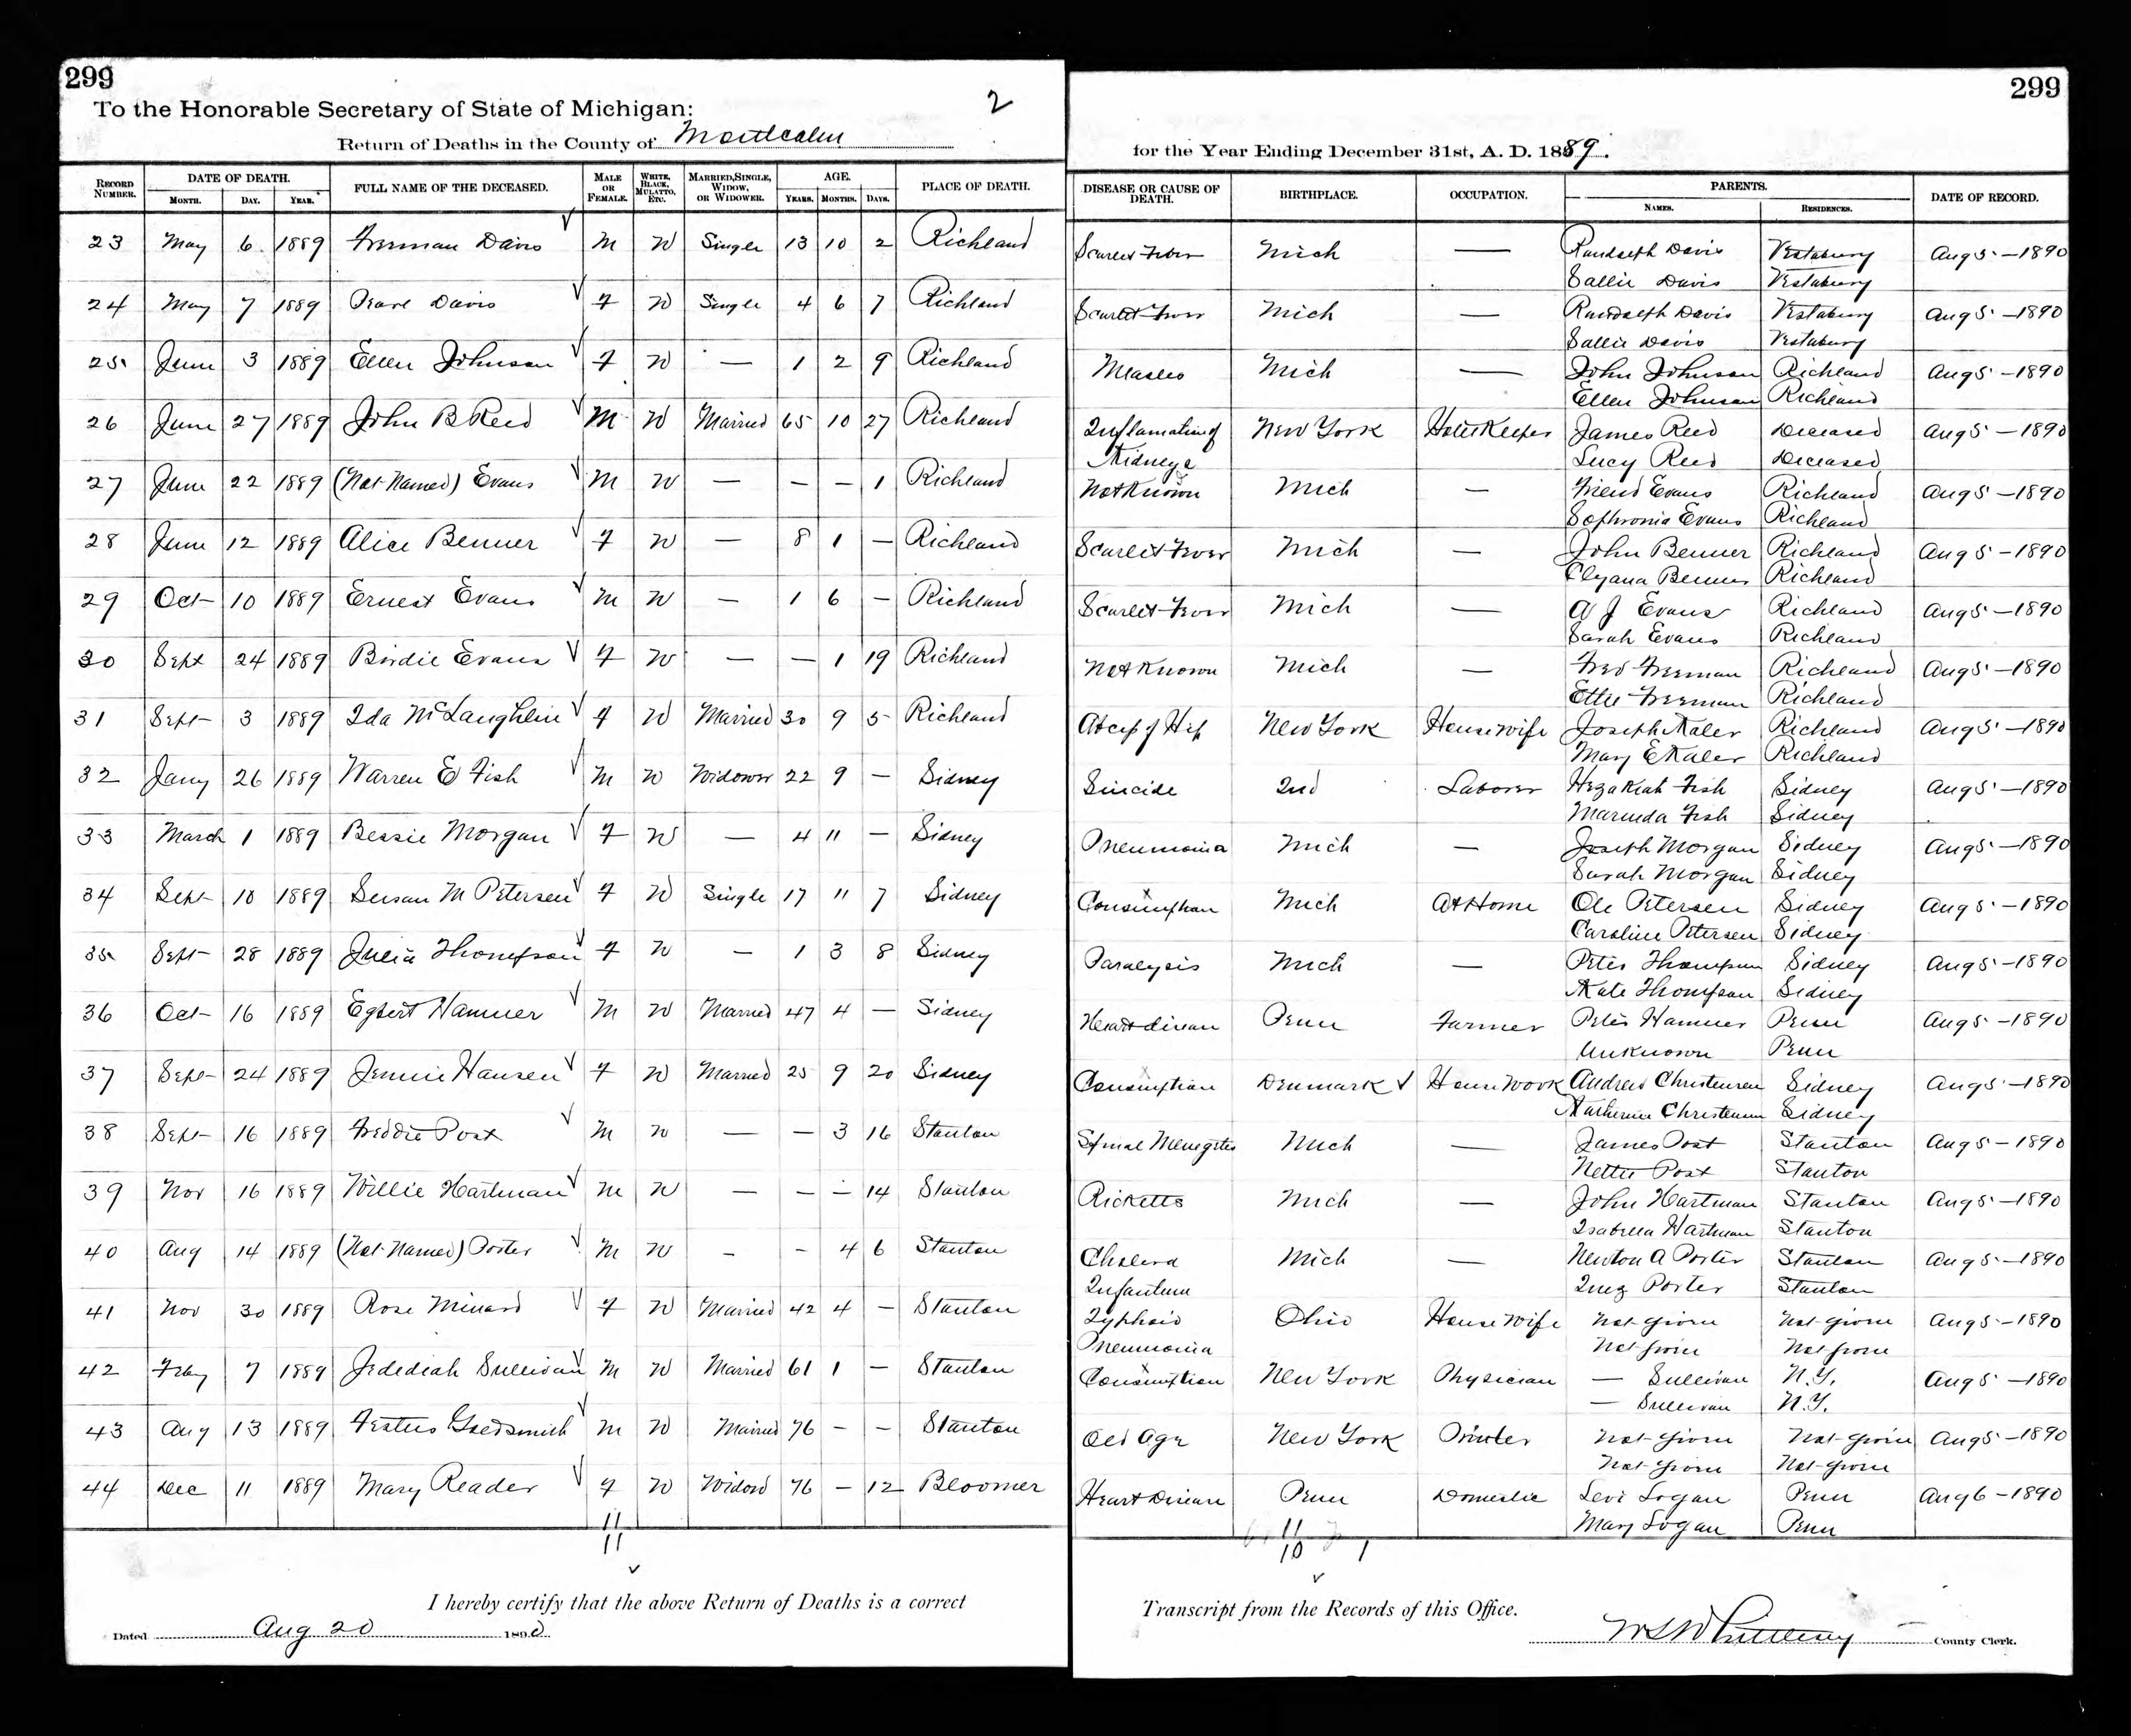 299
To the Honorable Secretary of State of Michigan: 2
Return of Deaths in the County of Montcalm
RECORD NUMBER. DATE OF DEATH. MONTH. DAY. YEAR. FULL NAME OF THE DECEASED. MALE OR FEMALE. WHITE, BLACK, MULATTO, ETC. MARRIED, SINGLE, WIDOW, OR WIDOWER. AGE. YEARS. MONTHS. DAYS. PLACE OF DEATH.
23 May 6 1889 Freeman Davis M W Single 13 10 2 Richland
24 May 7 1889 Pearl Davis F W Single 4 6 7 Richland
25 June 3 1889 Ellen Johnson F W — 1 2 9 Richland
26 June 27 1889 John B Reed M W Married 65 10 27 Richland
27 June 22 1889 (Not Named) Evans M W — — — 1 Richland
28 June 12 1889 Alice Benner F W — 8 1 — Richland
29 Oct 10 1889 Ernest Evans M W — 1 6 — Richland
30 Sept 24 1889 Birdie Evans F W — — 1 19 Richland
31 Sept 3 1889 Ida McLaughlin F W Married 30 9 5 Richland
32 Jany 26 1889 Warren E Fish M W Widower 22 9 — Sidney
33 March 1 1889 Bessie Morgan F W — 4 11 — Sidney
34 Sept 18 1889 Susan M Petersen F W Single 17 11 7 Sidney
35 Sept 28 1889 Julia Thompson F W — 1 3 8 Sidney
36 Oct 16 1889 Egbert Hamner M W Married 47 4 — Sidney
37 Sept 24 1889 Jennie Hansen F W Married 25 9 20 Sidney
38 Sept 16 1889 Freddie Post M W — — 3 16 Stanton
39 Nov 16 1889 Willie Hartman M W — — — 14 Stanton
40 Aug 14 1889 (Not Named) Porter M W - - 4 6 Stanton
41 Nov 30 1889 Rose Minard F W Married 42 4 — Stanton
42 Feby 7 1889 Jedediah Sullivan M W Married 61 1 — Stanton
43 Aug 13 1889 Festus Goldsmith M W Married 76 — — Stanton
44 Dec 11 1889 Mary Reader F W Widow 76 — 12 Bloomer
11
11
I hereby certify that the above Return of Deaths is a correct
Dated Aug 20 1890
299
for the Year Ending December 31st, A. D. 1889.
DISEASE OR CAUSE OF DEATH. BIRTHPLACE. OCCUPATION. PARENTS. NAMES. RESIDENCES. DATE OF RECORD.
Scarlet Fever Mich — Randolph Davis Vestaburg Aug 5 — 1890
Sallie Davis Vestaburg
Scarlet Fever Mich — Randolph Davis Vestaburg Aug 5 — 1890
Sallie Davis Vestaburg
Measles Mich — John Johnson Richland Aug 5 — 1890
Ellen Johnson Richland
Inflamation of New York Hotel Keeper James Reed Deceased Aug 5 — 1890
Kidneys Lucy Reed Deceased
Not Known Mich — Friend Evans Richland Aug 5 — 1890
Sophronia Evans Richland
Scarlet Fever Mich — John Benner Richland Aug 5 — 1890
Benner Richland
Scarlet Fever Mich — A J Evans Richland Aug 5 — 1890
Sarah Evans Richland
Not Known Mich — Fred Freeman Richland Aug 5 — 1890
Ettie Freeman Richland
of Hip New York Housewife Joseph Kaler Richland Aug 5 — 1890
Mary E Kaler Richland
Suicide Ind Laborer Hezakiah Fish Sidney Aug 5 — 1890
Marinda Fish Sidney
Pneumonia Mich — Joseph Morgan Sidney Aug 5 — 1890
Sarah Morgan Sidney
Consumption Mich At Home Ole Petersen Sidney Aug 5 — 1890
Caroline Petersen Sidney
Paralysis Mich — Peter Thompson Sidney Aug 5 — 1890
Kate Thompson Sidney
Heart disease Penn Farmer Peter Hamner Penn Aug 5 — 1890
Unknown Penn
Consumption Denmark Housework Andrew Christensen Sidney Aug 5 — 1890
Katherine Christensen Sidney
Spinal Menegites Mich — James Post Stanton Aug 5 — 1890
Nettie Post Stanton
Ricketts Mich — John Hartman Stanton Aug 5 — 1890
Isabella Hartman Stanton
Cholera Mich — Newton A Porter Stanton Aug 5 — 1890
Infantum Inez Porter Stanton
Typhoid Ohio Housewife Not given Not given Aug 5 — 1890
Pneumonia Not given Not given
Consumption New York Physician — Sullivan N.Y. Aug 5 — 1890
— Sullivan N.Y.
Old Age New York Printer Not given Not given Aug 5 — 1890
Not given Not given
Heart Disease Penn Domestic Levi Logan Penn Aug 6 — 1890
Mary Logan Penn
11
10 1
Transcript from the Records of this Office.
County Clerk.